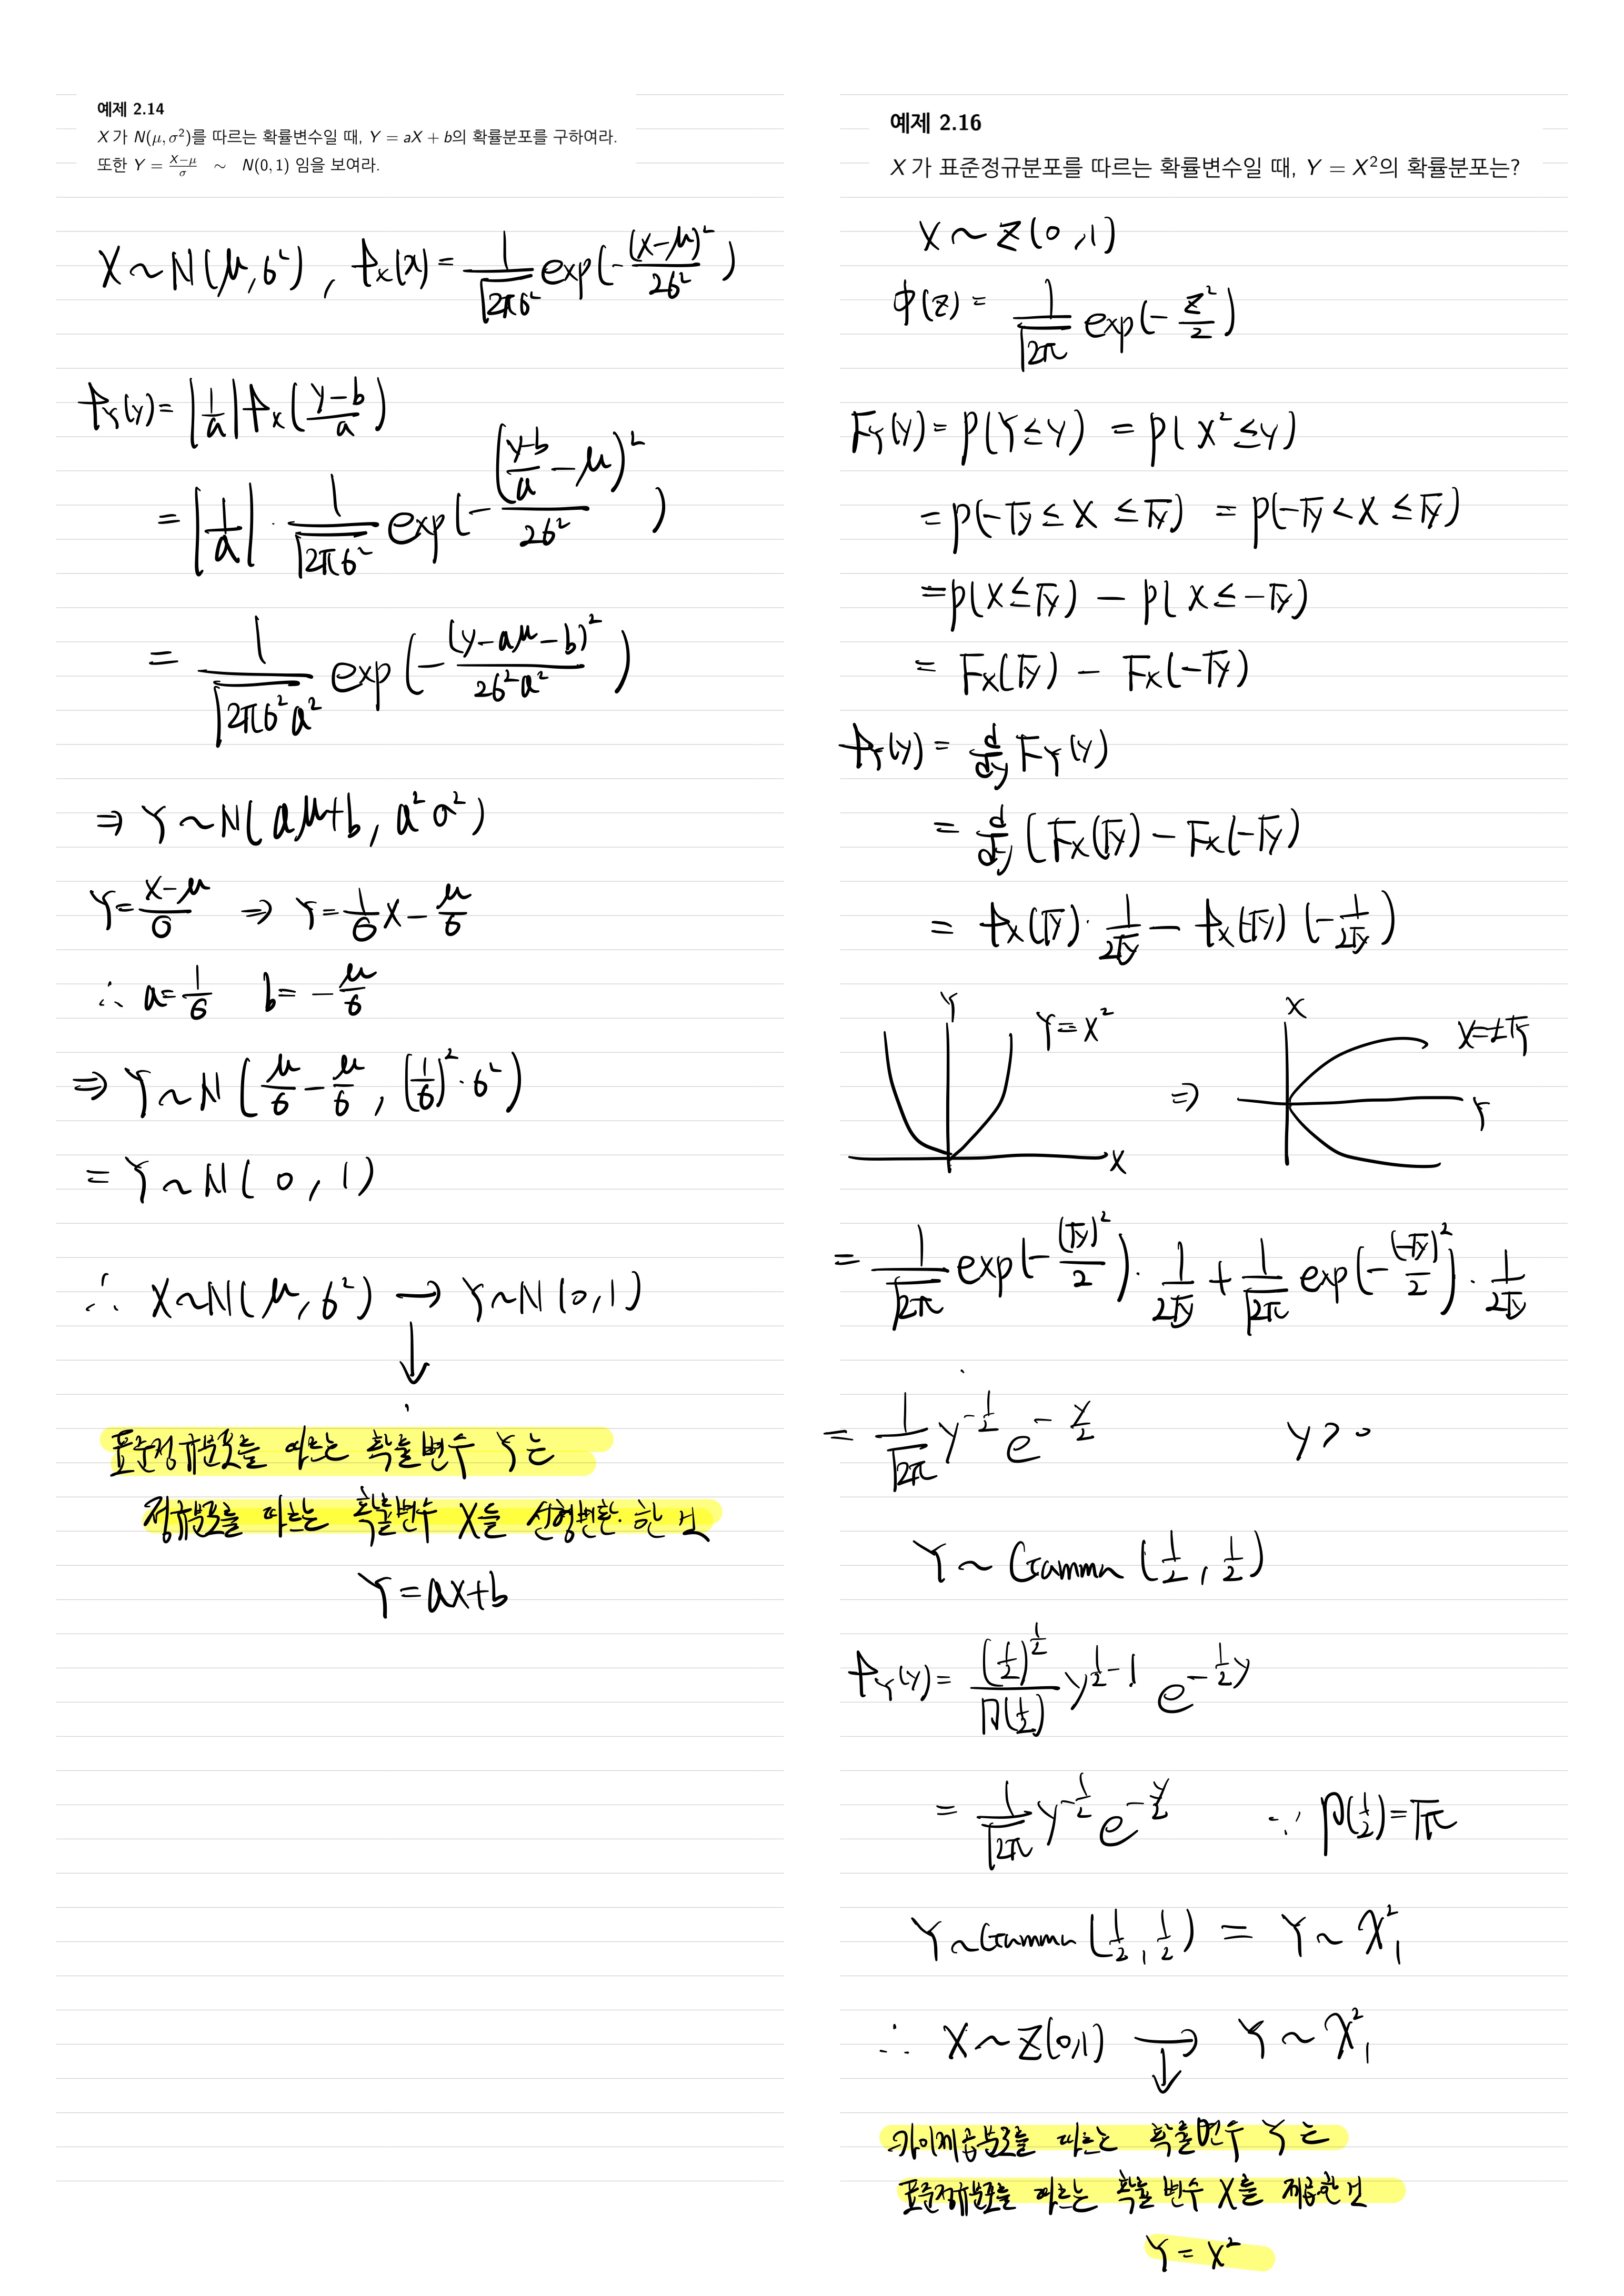 예제 2.14
X 가 N(μ, σ²)를 따르는 확률변수일 때, Y = aX + b의 확률분포를 구하여라.
또한 Y = (X−μ)/σ ∼ N(0, 1) 임을 보여라.
X ~ N(μ, σ²) , f_X(x) = 1/√(2πσ²) exp(−(x−μ)²/2σ²)
f_Y(y) = |1/a| f_X((y−b)/a)
= |1/a| · 1/√(2πσ²) exp(−((y−b)/a − μ)²/2σ²)
= 1/√(2πσ²a²) exp(−(y−aμ−b)²/2σ²a²)
⇒ Y ~ N(aμ+b, a²σ²)
Y = (X−μ)/σ ⇒ Y = 1/σ X − μ/σ
∴ a = 1/σ b = −μ/σ
⇒ Y ~ N(μ/σ − μ/σ, (1/σ)²·σ²)
= Y ~ N(0, 1)
∴ X ~ N(μ, σ²) → Y ~ N(0, 1)
↓
표준정규분포를 따르는 확률변수 Y는
정규분포를 따르는 확률변수 X를 선형변환 한 것
Y = aX+b
예제 2.16
X 가 표준정규분포를 따르는 확률변수일 때, Y = X²의 확률분포는?
X ~ Z(0, 1)
φ(z) = 1/√(2π) exp(−z²/2)
F_Y(y) = P(Y≤y) = P(X²≤y)
= P(−√y ≤ X ≤ √y) = P(−√y < X ≤ √y)
= P(X≤√y) − P(X≤−√y)
= F_X(√y) − F_X(−√y)
f_Y(y) = d/dy F_Y(y)
= d/dy (F_X(√y) − F_X(−√y)
= f_X(√y)· 1/2√y − f_X(−√y) (−1/2√y)
Y Y=X² X X=±√Y
⇒ Y
X
= 1/√(2π) exp(−(√y)²/2)· 1/2√y + 1/√(2π) exp(−(−√y)²/2)· 1/2√y
= 1/√(2π) y^(−1/2) e^(−y/2) y > 0
Y ~ Gamma (1/2, 1/2)
f_Y(y) = (1/2)^(1/2)/Γ(1/2) y^(1/2−1) e^(−1/2 y)
= 1/√(2π) y^(−1/2) e^(−y/2) ∵ Γ(1/2) = √π
Y ~ Gamma (1/2, 1/2) = Y ~ χ²₁
∴ X ~ Z(0,1) → Y ~ χ²₁
↓
카이제곱분포를 따르는 확률변수 Y는
표준정규분포를 따르는 확률변수 X를 제곱한 것
Y = X²